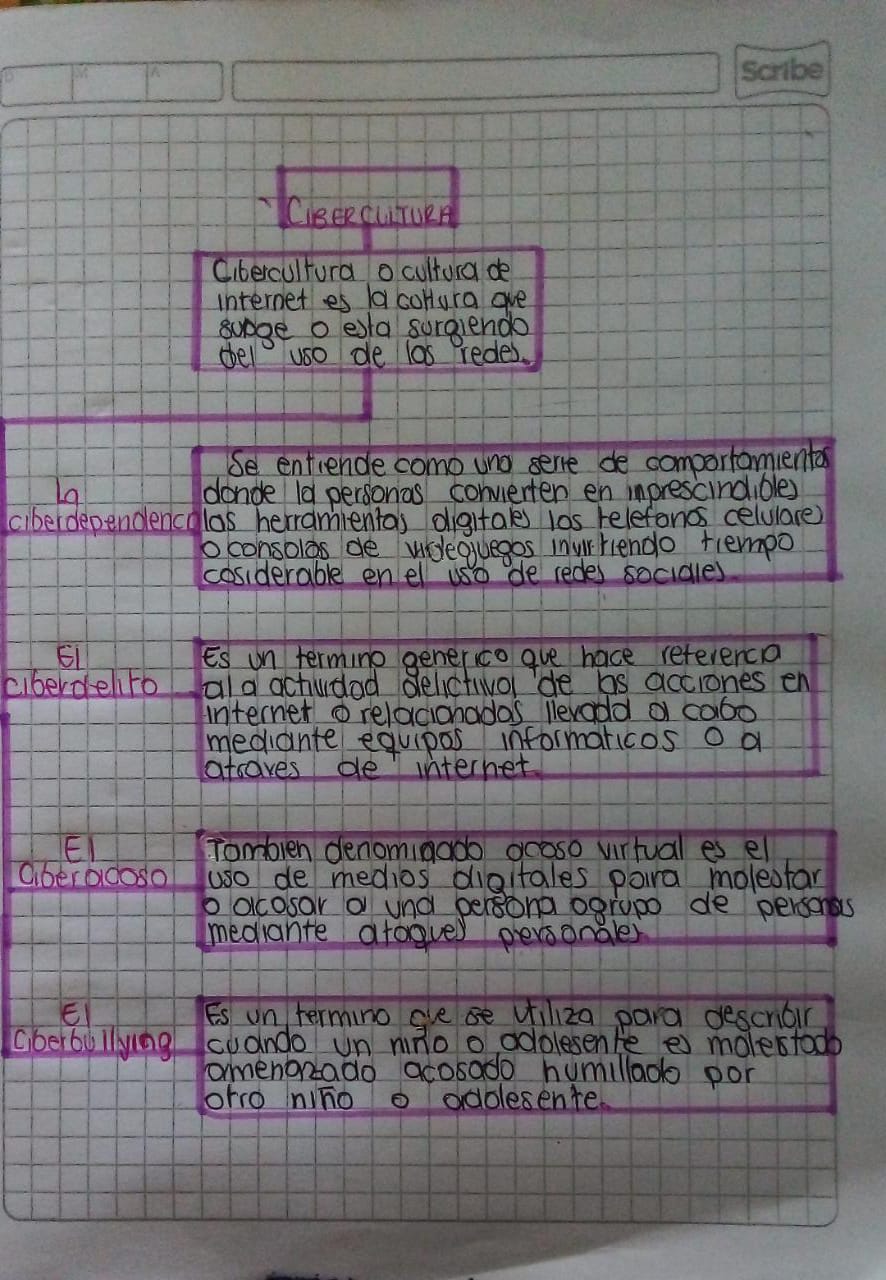 D M A
Scribe
CIBERCULTURA
Cibercultura o cultura de
internet es la coltura que
surge o esta surgiendo
del uso de las redes.
La
ciberdependenca
Se entiende como una serie de comportamientos
donde la personas convierten en inprescindibles
las herramientas digitales los telefonos celulares
o consolas de videojuegos invirtiendo tiempo
cosiderable en el uso de redes sociales.
El
ciberdelito
Es un termino generico que hace referenca
ala actividad delictiva de las acciones en
internet o relacionadas llevada a cabo
mediante equipos informaticos o a
atraves de internet.
El
Ciberacoso
Tambien denominado acoso virtual es el
uso de medios digitales para molestar
o acosar a una persona ogrupo de personas
mediante ataques personales
El
Ciberbullying
Es un termino que se utiliza para describir
cuando un niño o adolesente es molestado
amenazado acosado humillado por
otro niño o adolesente.